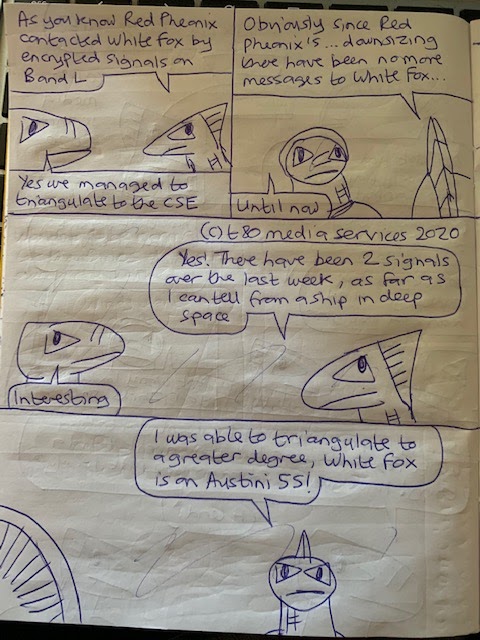 As you know Red Pheonix
contacted White Fox by
encrypted signals on
Band L
Yes we managed to
triangulate to the CSE
Obviously since Red
Pheonix is... downsizing
there have been no more
messages to White Fox...
Until now
(C) t80 media services 2020
Yes! There have been 2 signals
over the last week, as far as
I can tell from a ship in deep
space
Interesting
I was able to triangulate to
a greater degree, White Fox
is on Austini 55!